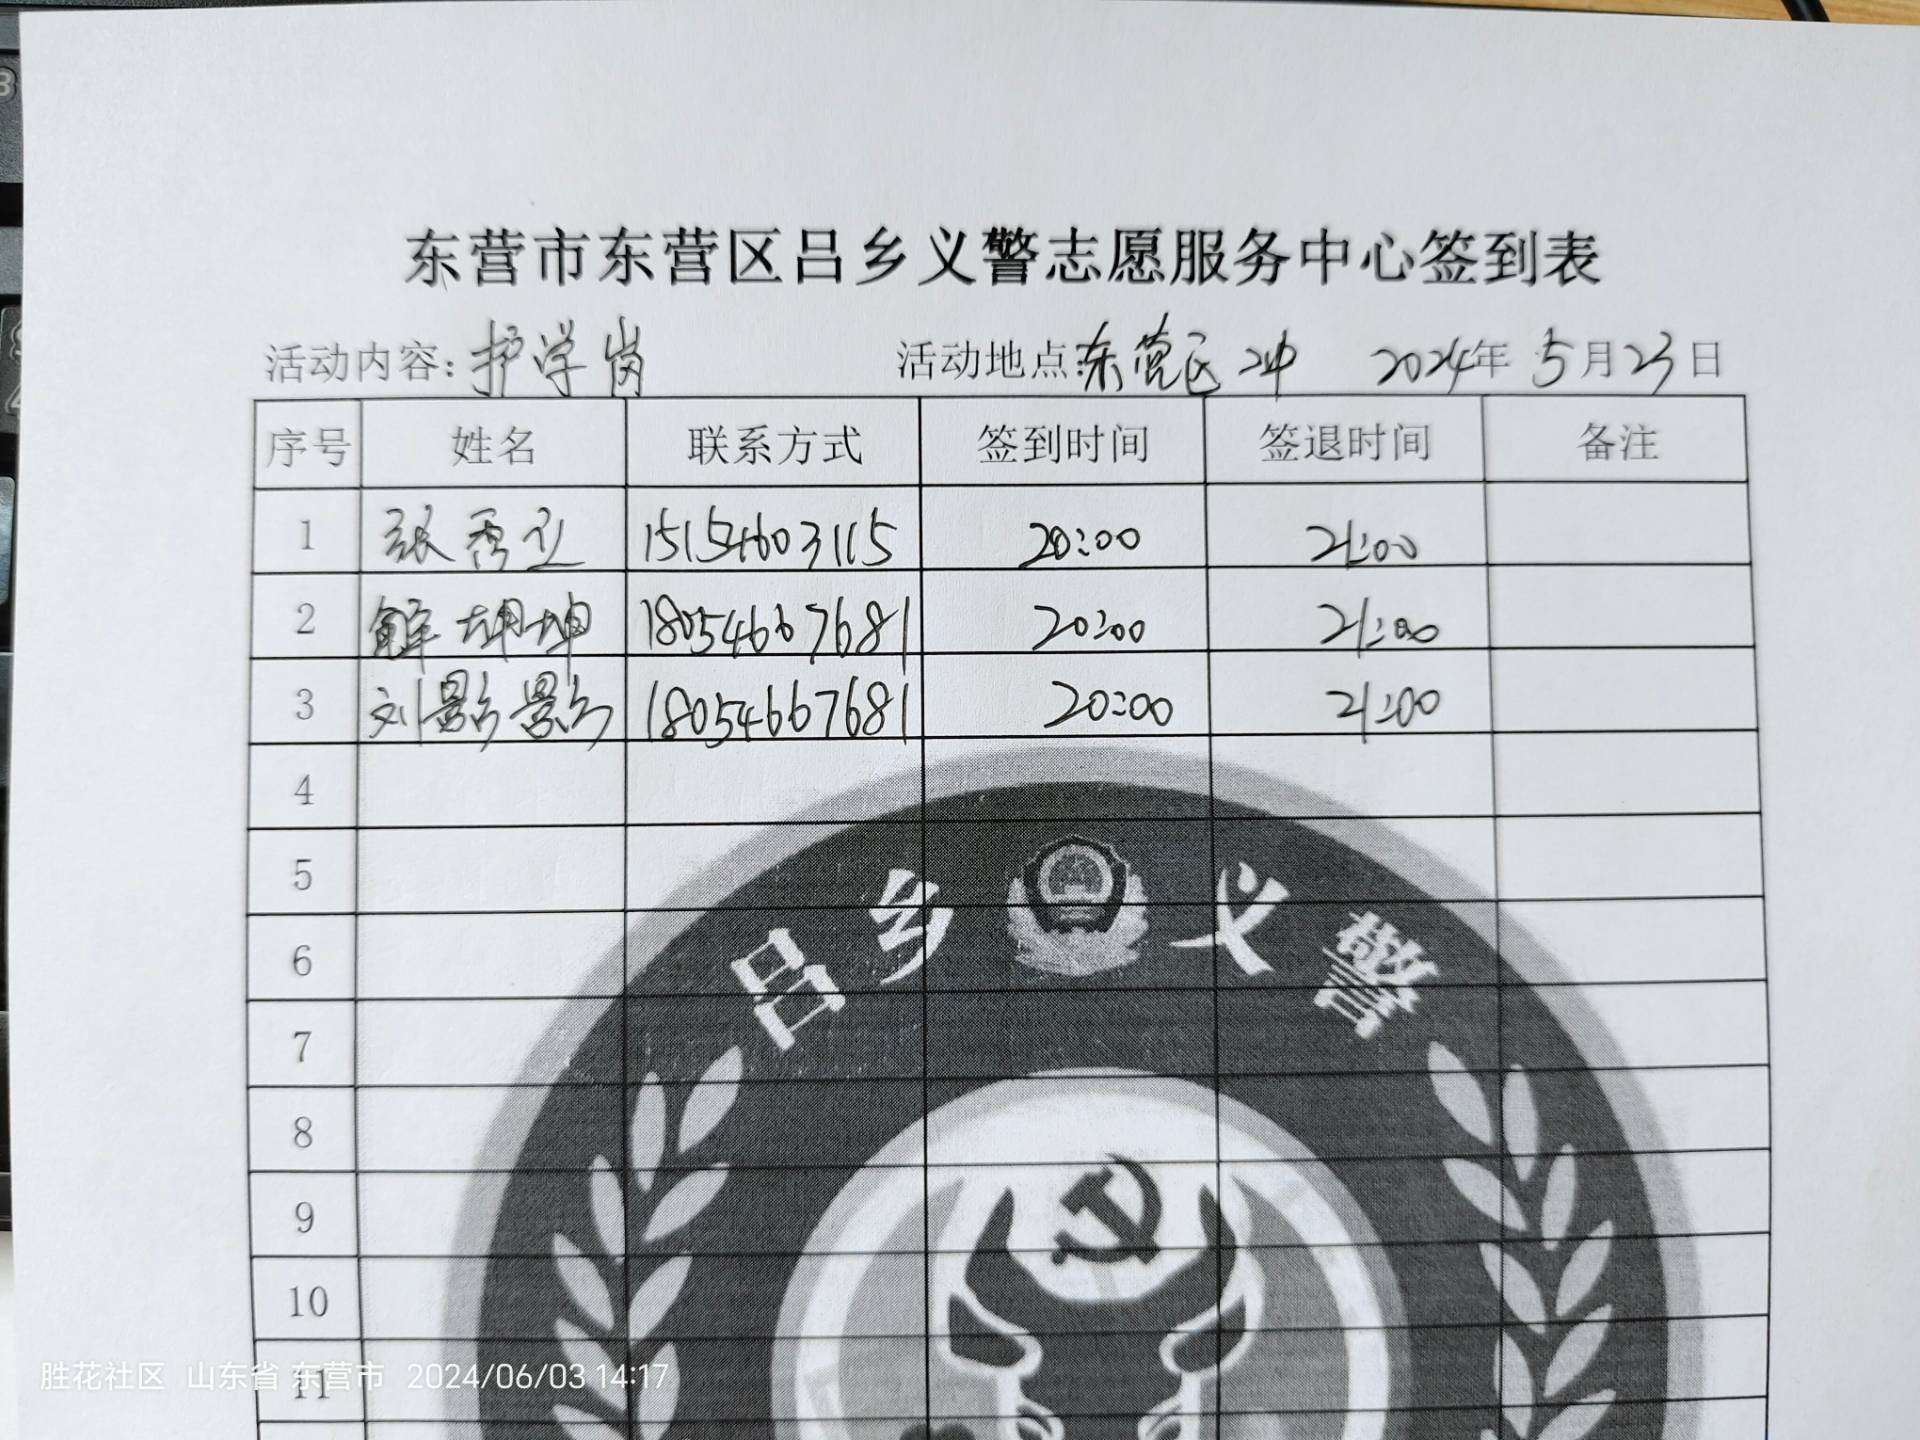 东营市东营区吕乡义警志愿服务中心签到表
活动内容:护学岗 活动地点:东营区二中 2024年 5月23日
序号 姓名 联系方式 签到时间 签退时间 备注
1 张秀卫 15154603115 20:00 21:00
2 解坤坤 18054667681 20:00 21:00
3 刘影影 18054667681 20:00 21:00
4
5
6
7
8
9
10
11
吕乡义警
胜花社区 山东省 东营市 2024/06/03 14:17